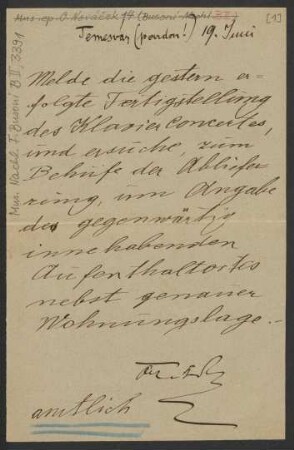 Mus. ep. O. Novácek 17 (Busoni-Nachl. II)
[1]
Temesvar (pardon!) 19. Juni
Melde die gestern er-
folgte Fertigstellung
des Klavierconcertes,
und ersuche, zum
Behufe der Abliefer
rung, um Angabe
des gegenwärtig
innehabenden
Aufenthaltortes
nebst genauer
Wohnungslage.-
amtlich
Mus. Nachl. F. Busoni B II, 3391